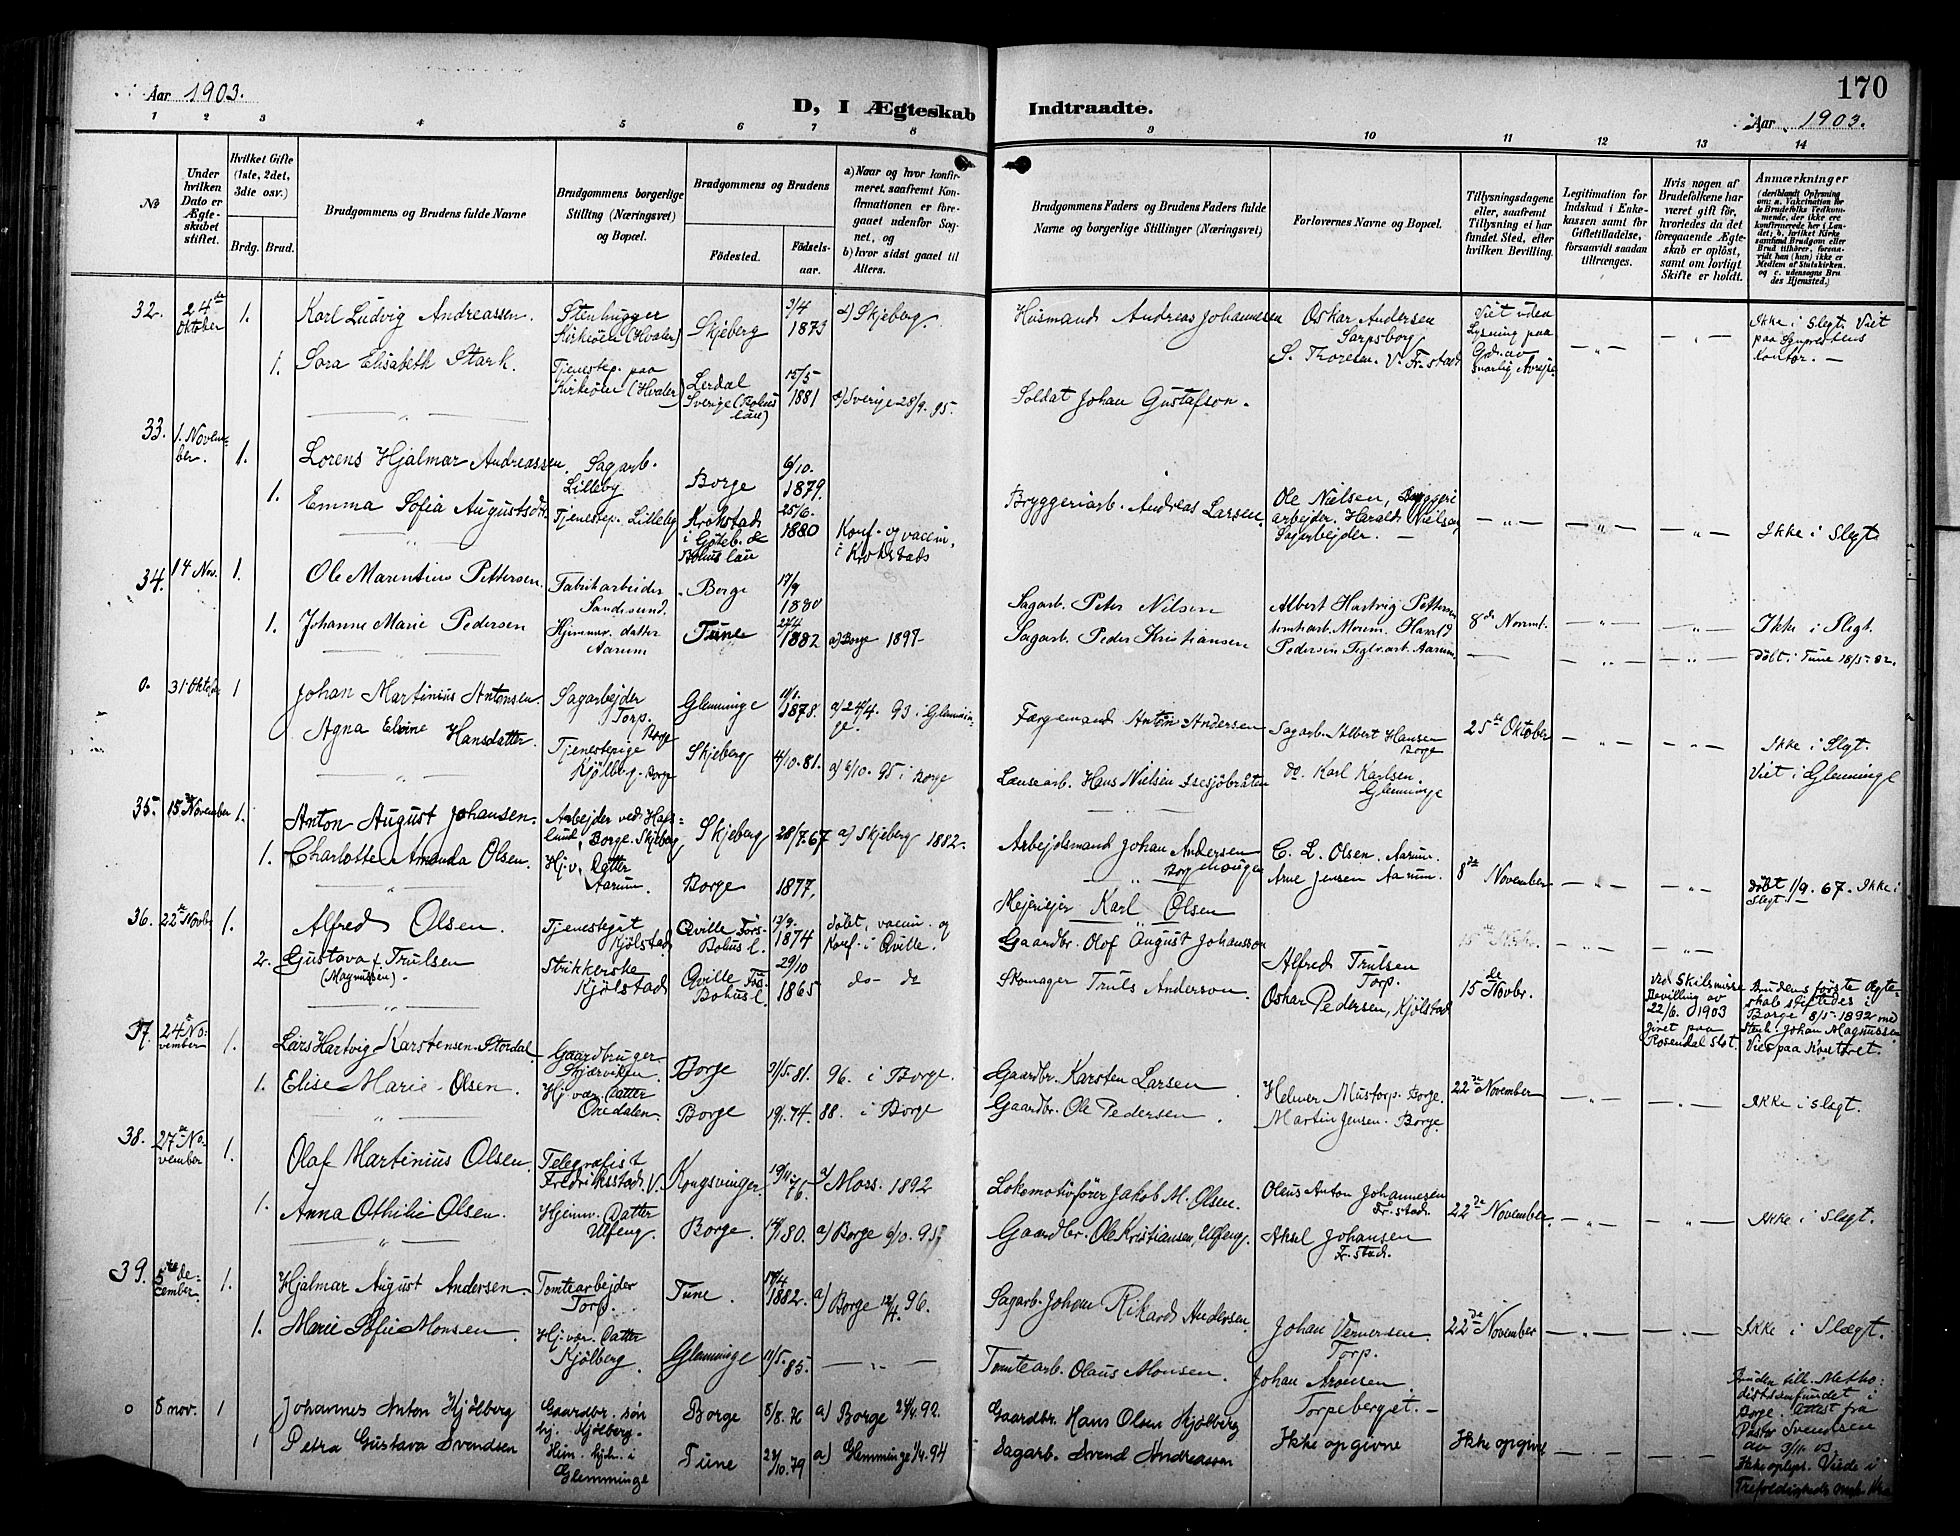 Aar 1903.
D, I Ægteskab Indtraadte.
170
Aar 1903.
1 2 3 4 5 6 7 8 9 10 11 12 13 14
No
Under hvilken Dato er Ægteskabet stiftet.
Hvilket Gifte (1ste, 2det, 3die osv.)
Brdg. Brud.
Brudgommens og Brudens fulde Navne
Brudgommens borgerlige Stilling (Næringsvei) og Bopæl.
Brudgommens og Brudens
Fødested.
Fødselsaar.
a) Naar og hvor konfirmeret, saafremt Konfirmationen er foregaaet udenfor Sognet, og
b) hvor sidst gaaet til Alters.
Brudgommens Faders og Brudens Faders fulde Navne og borgerlige Stillinger (Næringsvei)
Forlovernes Navne og Bopæl.
Tillysningsdagene eller, saafremt Tillysning ei har fundet Sted, efter hvilken Bevilling.
Legitimation for Indskud i Enkekassen samt for Giftetilladelse, forsaavidt saadan tiltrænges.
Hvis nogen af Brudefolkene har været gift før, hvorledes da det foregaaende Ægteskab er opløst, samt om lovligt Skifte er holdt.
Anmærkninger
(deriblandt Oplysning om: a. Vakcination for de Brudefolks Vedkommende, der ikke ere konfirmerede her i Landet; b. hvilket Kirkesamfund Brudgom eller Brud tilhører, forsaavidt han (hun) ikke er Medlem af Statskirken, og c. udensogns Brudes Hjemsted.)
32. 24de Oktober 1. Karl Ludvig Andreassen. Stenhugger Kirkøen (Hvaler) Skjeberg 3/4 1873 a) Skjeberg. Husmand Andreas Johannesen Oskar Andersen Sarpsborg Viet uden Lysning paa Ikke i Slegt. Viet paa Sognprestens Kontor. —
1. Sara Elisabeth Stark. Tjenestep. paa Kirkøen (Hvaler) Lerdal Sverige (Bohus län) 15/5 1881 a) Sverige 28/9. 95. Soldat Johan Gustafson. S. Thorelen. V. Fr.stad
33. 1. November. 1. Lorens Hjalmar Andreassen. Sagarb. Lilleby Borge 6/10. 1879. Bryggeriarb. Andreas Larsen. Ole Nielsen, Bryggeriarbejder. Harald Nielsen Sagarbejder. — Ikke i Slegt
1. Emma Sofia Augustsdtr. Tjenestep. Lilleby Krokstad i Göteb. & Bohus län 25/6. 1880 Konf. og vaccin. i Krokstads
34. 14 Nov. 1. Ole Marentius Pettersen. Fabrikarbeider Sandesund. Borge 17/9 1880 Sagarb. Peter Nilsen Albert Hartvig Pettersen 8de Novmb. Ikke i Slegt.
1. Johanne Marie Pedersen Hjemmev. datter Aarum Tune 24/4 1882 a) Borge 1897 Sagarb. Peder Kristiansen Pedersen Teglv.arb. Aarum. Døbt i Tune 18/5. 82.
0. 31 Oktober 1 Johan Martinius Antonsen. Sagarbejder Torp. Borge Glemminge 1878. a) 24/4. 93 i Glemminge. Færgemand Anton Andersen Sagarb. Albert Hansen Borge 25de Oktober Ikke i Slegt.
Agna Elvine Hansdatter. Tjenestepige Kjølberg. Borge Skjeberg 4/10. 81. a) 6/10. 95 i Borge Lænsearb. Hans Nielsen Isesjøbråten do. Karl Karlsen. Glemminge Viet i Glemminge
35. 15de November 1. Anton August Johansen. Arbejder ved Hafslund, Borge. Skjeberg Skjeberg 28/7. 67 a) Skjeberg 1882. Arbejdsmand Johan Andersen Borgenhaugen C. L. Olsen. Aarum. 8de November
1. Charlotte Amanda Olsen. Hj.v. Datter Aarum. Borge 1877, Mejeriejer Karl Olsen Arne Jensen Aarum. Døbt 1/9. 67. Ikke i Slegt. —
36. 22de Novbr 1. Alfred Olsen. Tjenestegut Kjølstad Qville Fors. Bohus l. 13/9. 1874 Døbt, vaccin. og Konf. i Qville. Gaardbr. Olof August Johansson Alfred Trulsen Torp. 15de Novbr.
2. Gustava f. Trulsen (Magnussen) — Strikkerske Kjølstad Qville Fors. Bohus l. 29/10 1865 do — do Skomager Truls Anderson. Oskar Pedersen, Kjølstad ved Skilsmissebevilling av 22/6. 1903 givet paa Rosendal Slot. Brudens første Ægteskab stiftedes i Borge 8/5. 1892 med Stenh. Johan Magnussen. Vies paa Kontoret.
37. 24de November 1. Lars Hartvig Karstensen-Stordal Gaardbruger Skjærviken. Borge 9/5. 81. 96. i Borge. Gaardbr. Karsten Larsen Helmer Mustorp. Borge. 22de November Ikke i slegt.
1. Elise Marie Olsen. Hj. vær. Datter Oredalen. Borge 19/1. 74. 88. i Borge Gaardbr. Ole Pedersen Martin Jensen. Borge.
38. 27de November 1. Olaf Martinius Olsen. Telegrafist Fredriksstad. V. Kongsvinger. 19/11 76. a) Moss. 1892 Lokomotivfører Jakob M. Olsen. Olaus Anton Johannesen Fr.stad. 22de November. Ikke i Slægt.
1. Anna Othilie Olsen. Hjemv. Datter Ulfeng. Borge. 80. a) Borge 6/10. 95. Gaardbr. Ole Kristiansen, Ulfeng. Aksel Johansen Fr.stad.
39. 5te December. 1. Hjalmar August Andersen Tomtearbejder Torp. Tune. 17/4 1882. a) Borge 12/4. 96. Sagarb. Johan Rikard Andersen. Johan Vernersen. Torp. 22de November Ikke i Slægt.
1. Marie Sofie Monsen. Hj. vær. Datter Kjølberg. Glemminge 11/5. 85. Tomtearb. Olaus Monsen. Johan Arnesen. Torpeberget. —
0 8 nov. 1 Johannes Anton Kjølberg Gaardbr. søn bj. Kjølberg. Borge 8/8. 76 a) Borge 24/4. 92. Gaardbr. Hans Olsen Kjølberg Ikke opgivne Ikke opgivet Bruden till. Methodistsamfundet i Borge. Attest fra Pastor Svendsen av 3/11. 03.
1 Petra Gustava Svendsen Glemminge Tune 22/10. 79 a) Glemminge 94 Sagarb. Svend Andreassen Ikke oplyst.